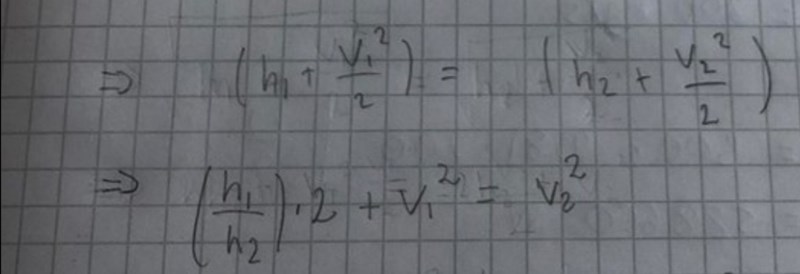 ⇒ (h₁ + V₁²/2) = (h₂ + V₂²/2)
⇒ (h₁/h₂)·2 + V₁² = V₂²